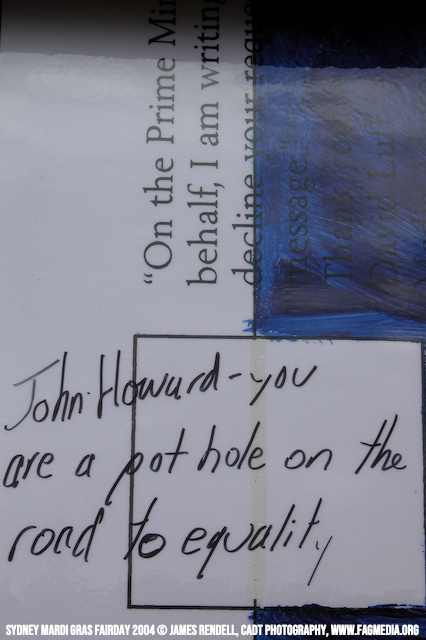 "On the Prime
behalf, I am writing
decline your
message."
Thank you
David Luff
John Howard - you
are a pot hole on the
road to equality
SYDNEY MARDI GRAS FAIRDAY 2004 © JAMES RENDELL, CADT PHOTOGRAPHY, WWW.FAGMEDIA.ORG